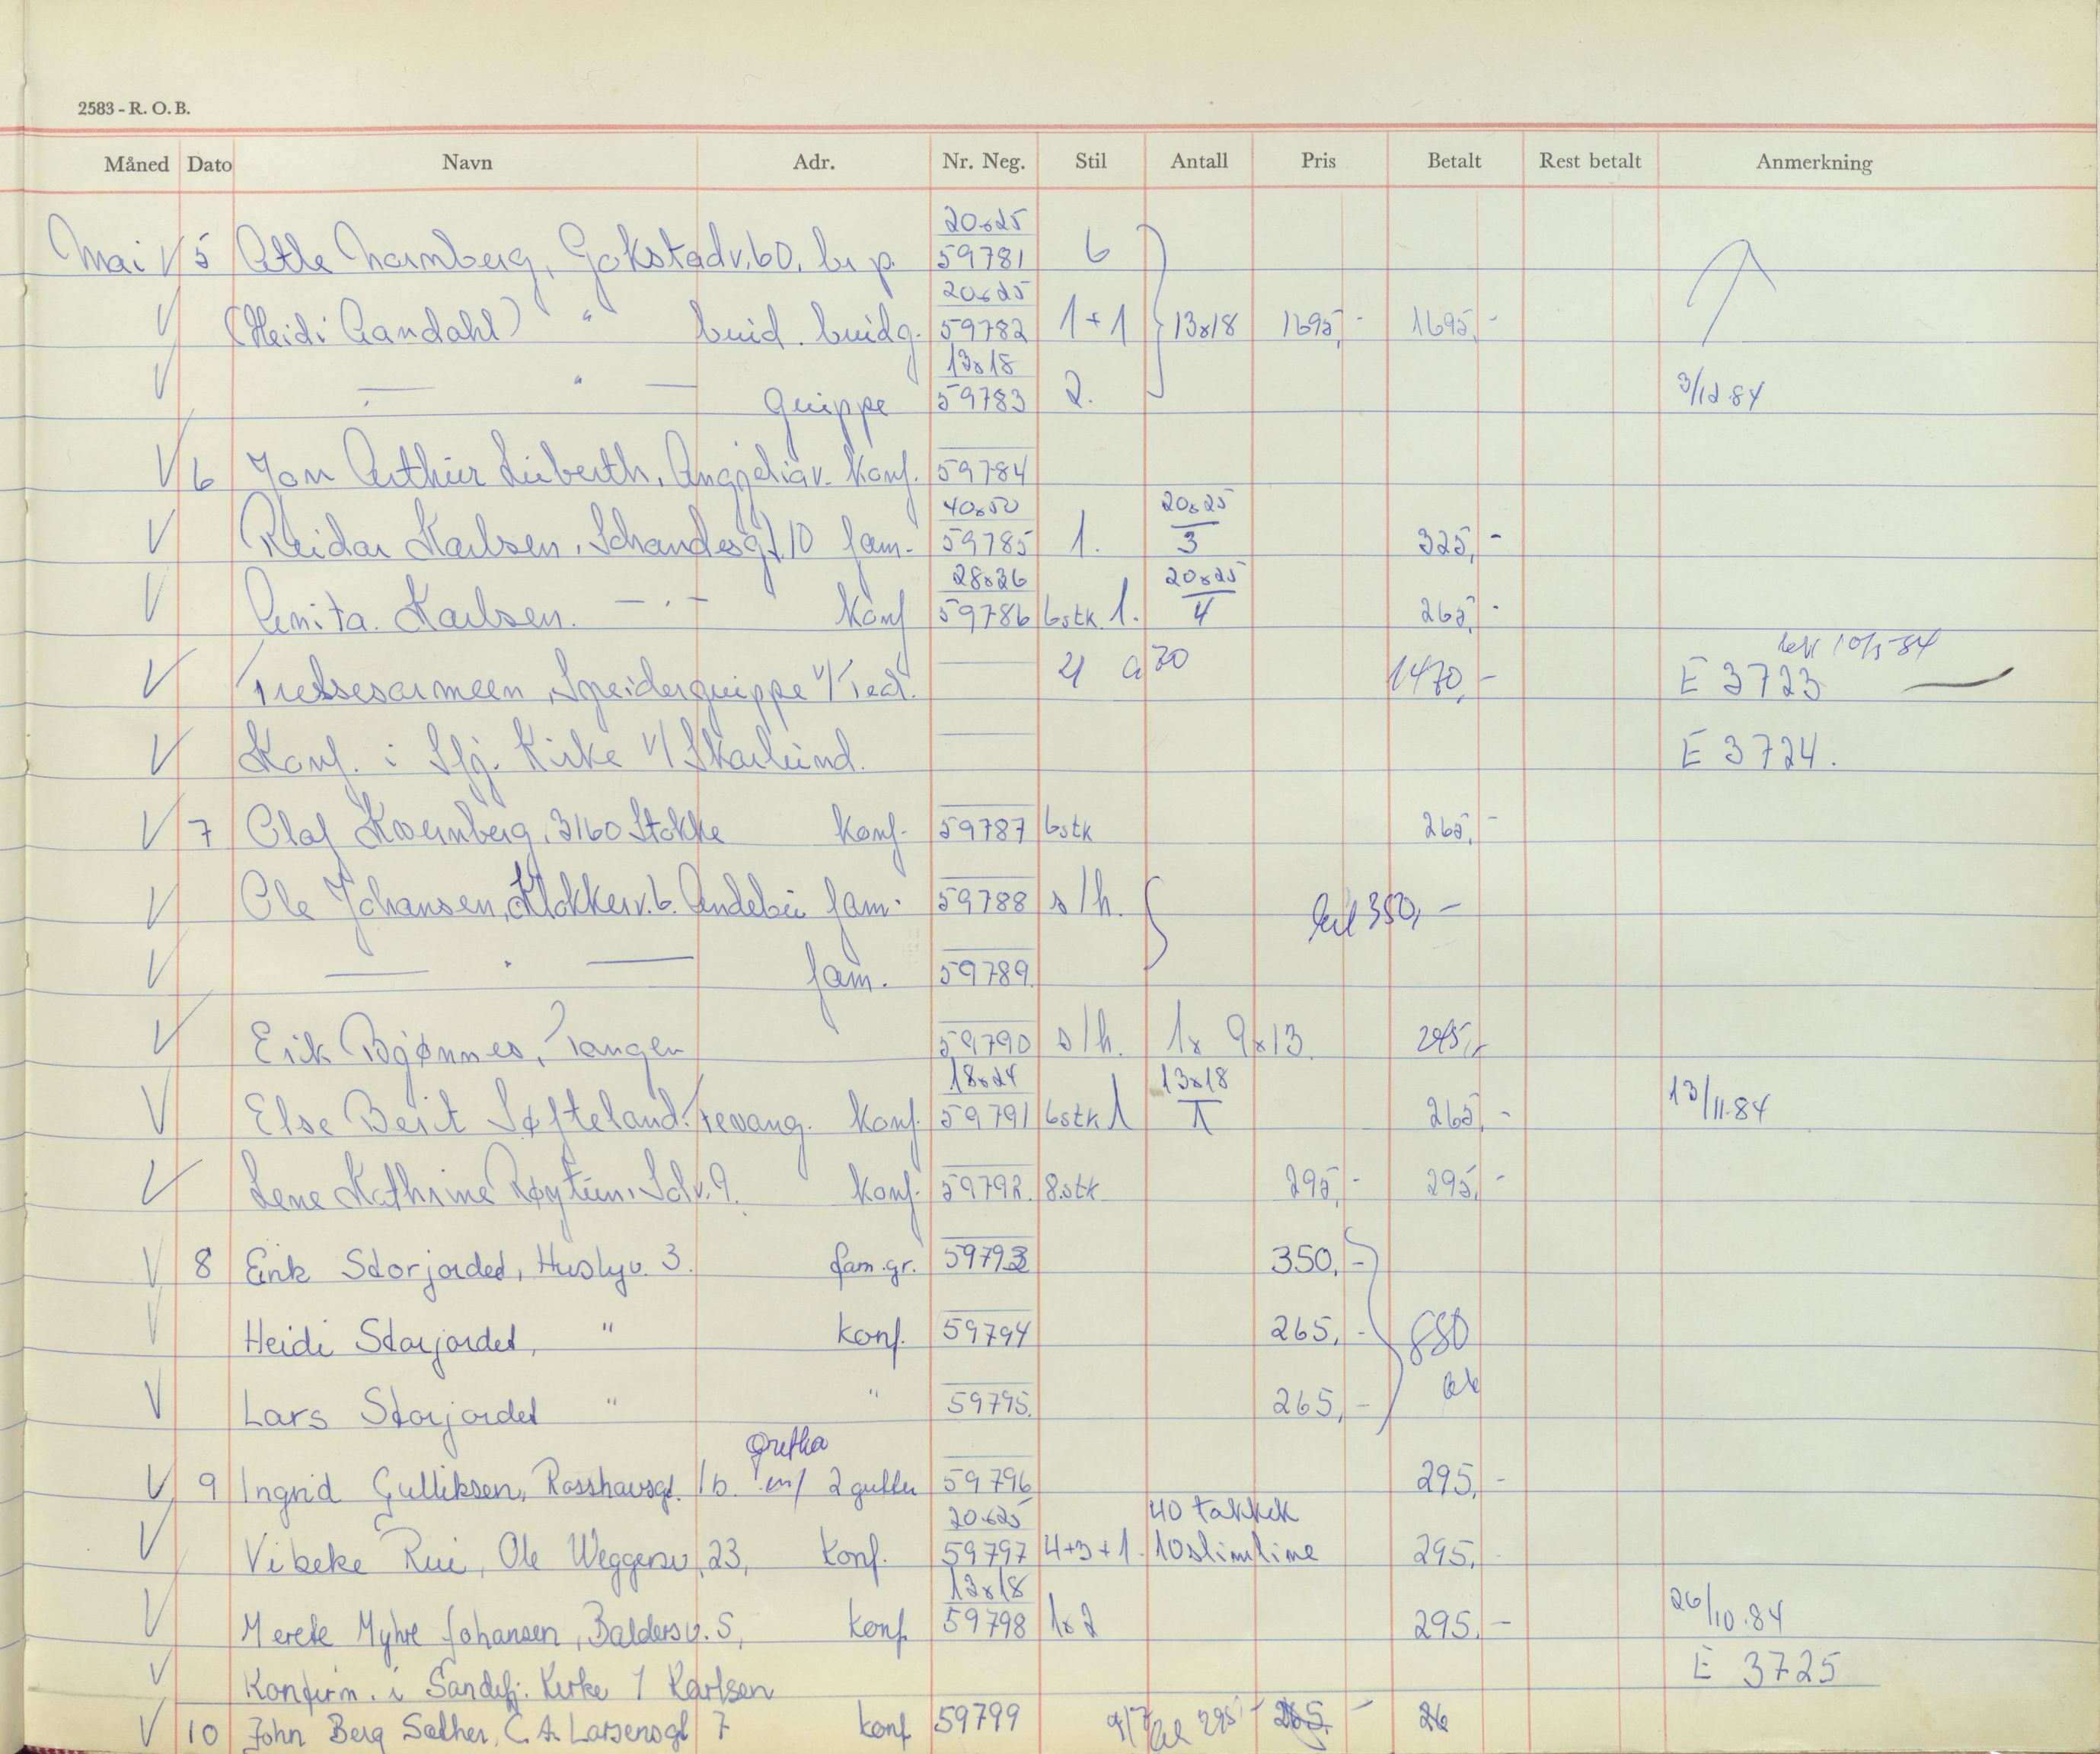 2583 - R. O. B.
Måned Dato Navn Adr. Nr. Neg. Stil Antall Pris Betalt Rest betalt Anmerkning
20x25
Mai V 5 Atle Namberg, Gokstadv. 60. br.p. 59781 6
20x25
V (Heidi Aandahl) " brud. brudg. 59782 1+1 13x18 1695,- 1695,-
13x18
V — " — gruppe 59783 2. 3/12.84
V 6 Jon Arthur Liberth, konf. 59784
40x50 20x25
V Reidar Karlsen, 10 fam. 59785 1. 3 325,-
28x36 20x25
V Anita Karlsen. — " — konf 59786 6stk. 1. 4 265,-
10/5-84
V Frelsesarmeen, Speidergruppe v/ 21 a 70 1470,- E 3723
V Konf. i Sfj. Kirke v/ Skarlund. E 3724.
V 7 Olaf Kvernberg, 3160 Stokke konf. 59787 6stk 265,-
V Ole Johansen, Klokkerv. 6. Andebu fam. 59788 s/h. 350,-
V — " — fam. 59789.
V Erik Bjønnes, Tangen 59790 s/h. 1x 9x13. 245,-
18x24 13x18
V Else Berit Søfteland. Trevang. konf. 59791 6stk 1 1 265,- 13/11-84
V Lene Kathrine Røytun, v. 9. konf. 59792. 8.stk 295,- 295,-
V 8 Eirik Storjordet, Huslyv. 3. fam.gr. 59793 350,-
V Heidi Storjordet, " konf. 59794 265,- 880
V Lars Storjordet " " 59795. 265,-
Gretha
V 9 Ingrid Gulliksen, Rosshavsgt. 1b. m/ 2 gutter 59796 295,-
20x25 40 takkek
V Vibeke Rui, Ole Weggersv. 23, konf. 59797 4+3+1. 10 slimline 295,
13x18
V Merete Myhre Johansen, Baldersv. 5, konf 59798 1x2 295,- 26/10.84
V Konfirm. i Sandefj. Kirke / Karlsen E 3725
V 10 John Berg Sæther, C. A. Larsensgt 7 konf 59799 295 265,- 26